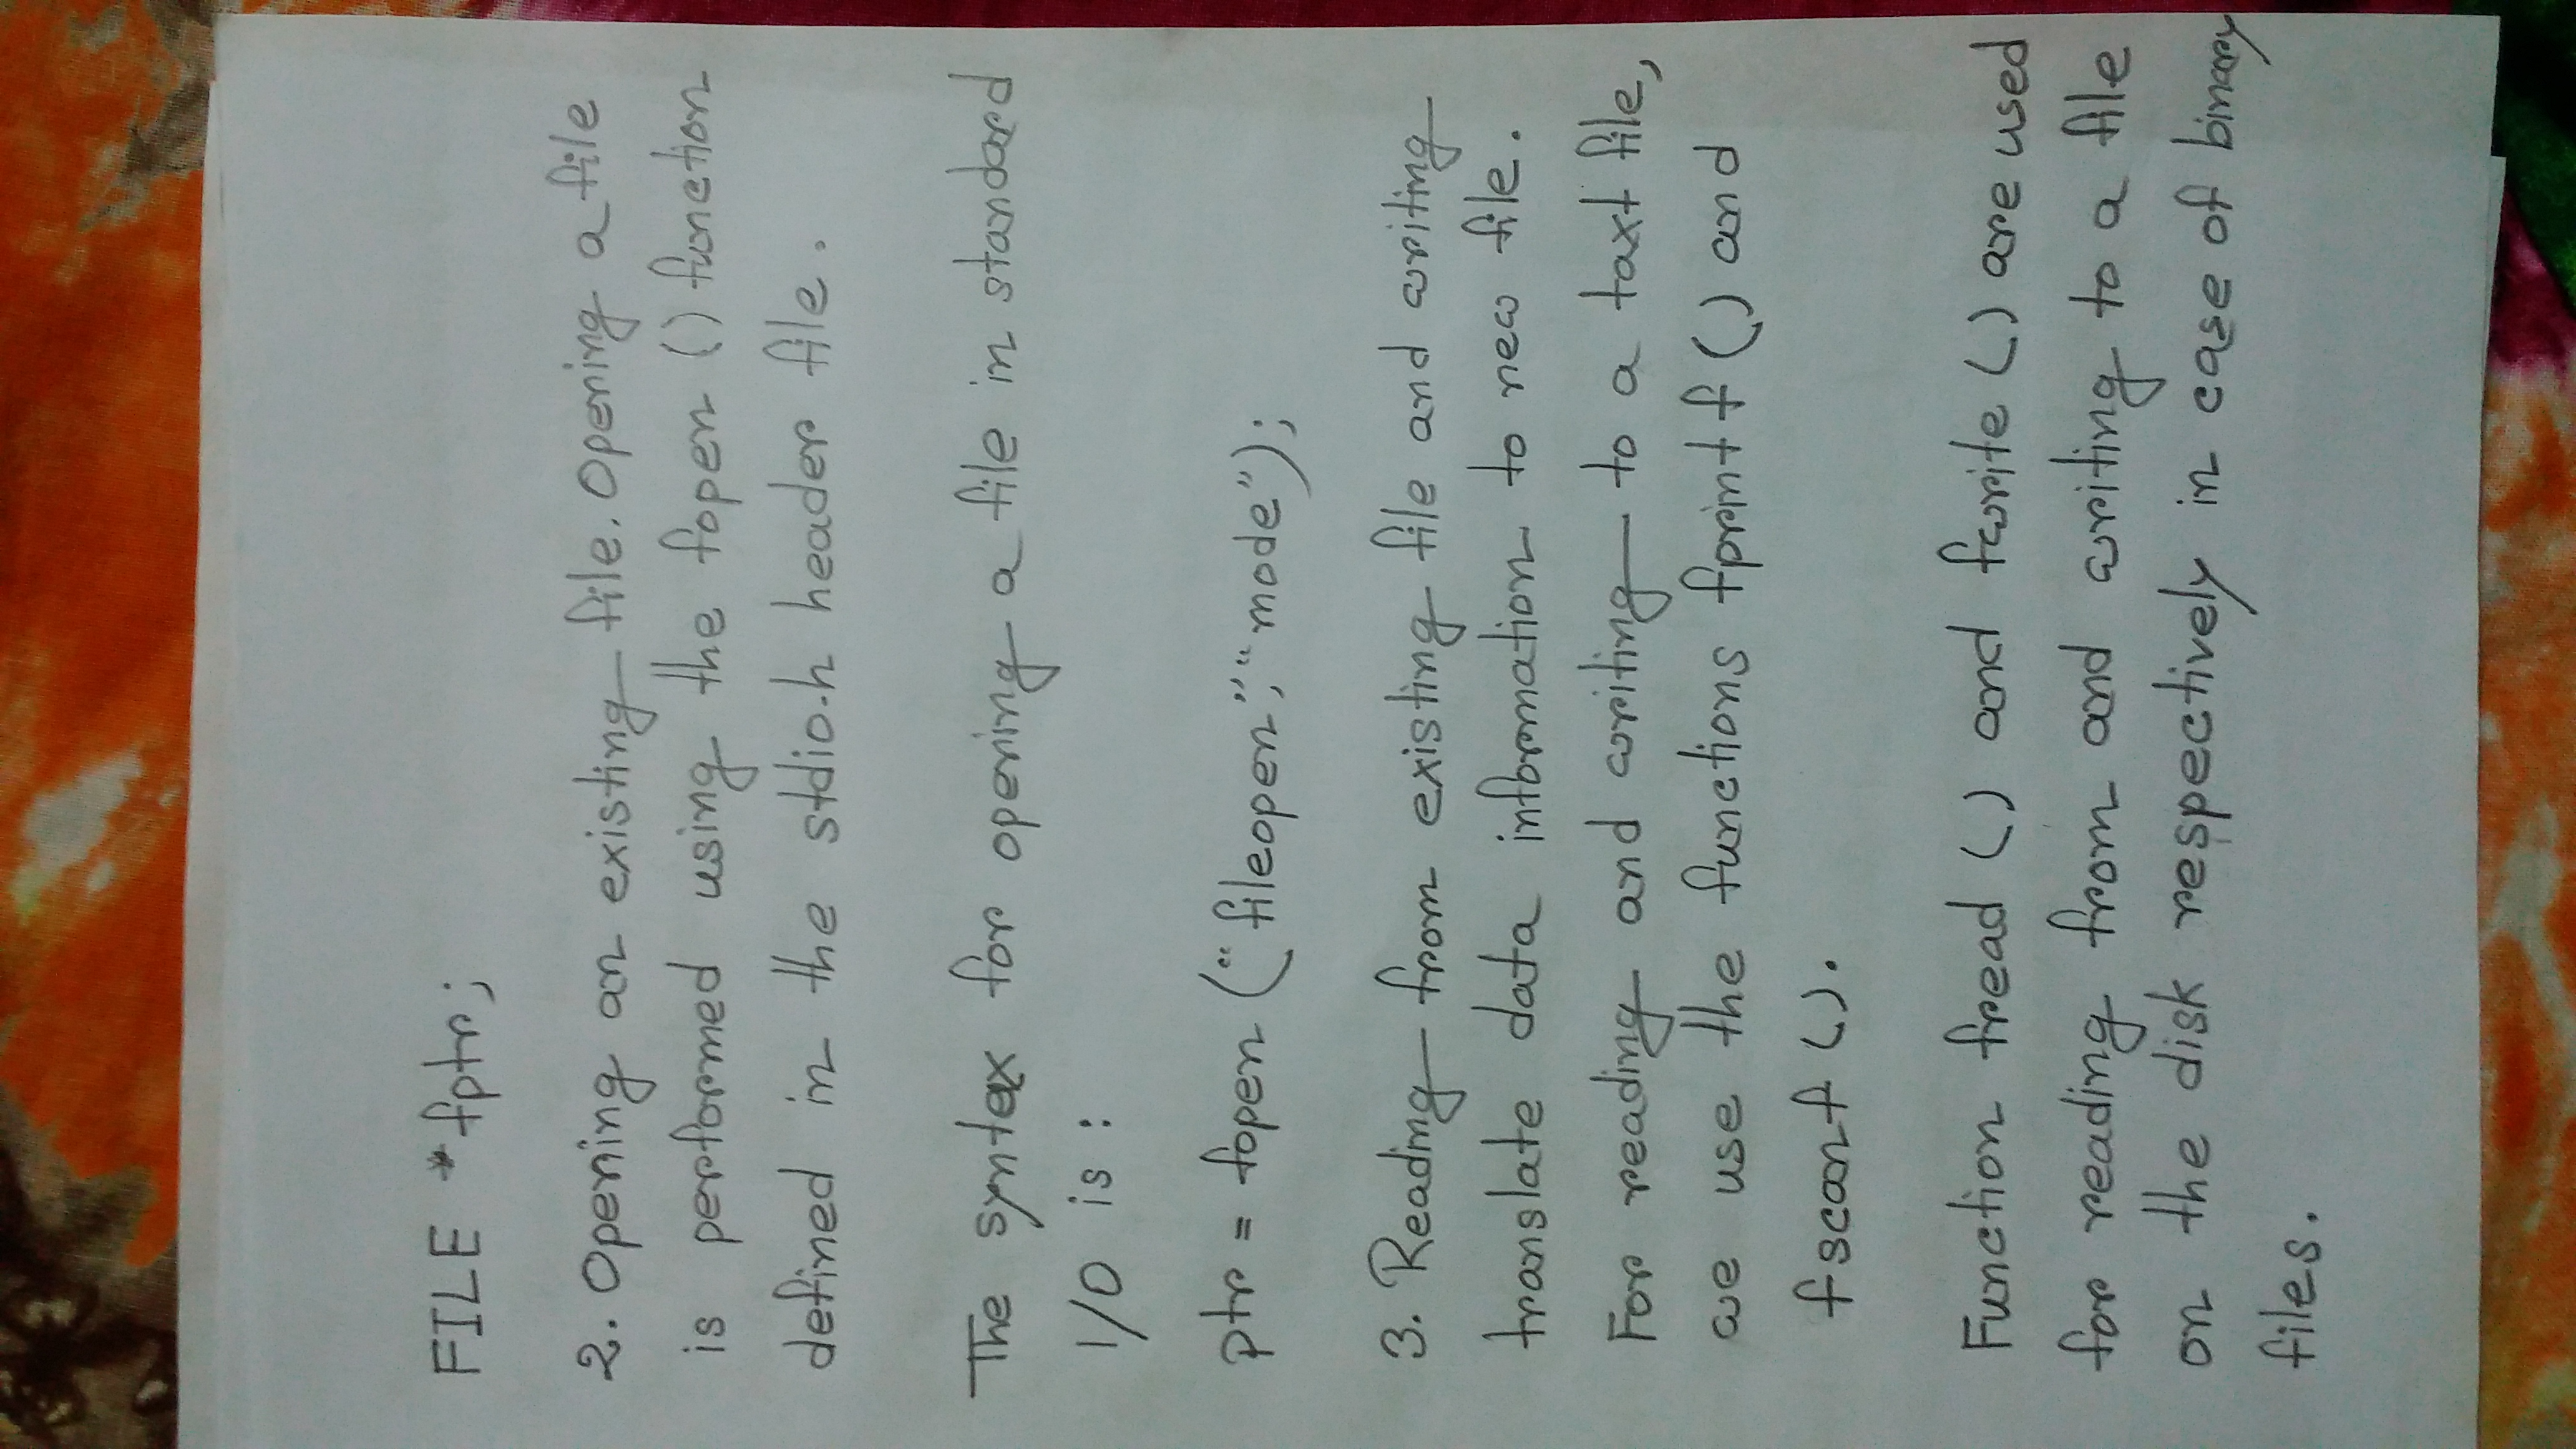 FILE *fptr;
2. Opening an existing file. Opening a file
is performed using the fopen () function
defined in the stdio.h header file.
The syntax for opening a file in standard
I/O is :
ptr = fopen ("fileopen","mode");
3. Reading from existing file and writing
translate data information to new file.
For reading and writing to a taxt file,
we use the functions fprintf () and
fscanf ().
Function fread () and fwrite () are used
for reading from and writing to a file
on the disk respectively in case of binary
files.